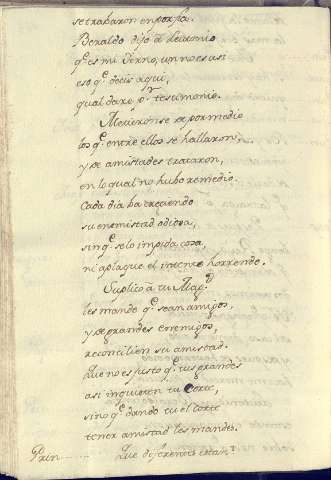 se trabaron en porfia.
Beraldo dijo a
q.e es mi Yerno, un no es asi
eso q.e decis aqui,
qual dare p.r testimonio.
Metieronse de por medio
los q.e entre ellos se hallaron,
y de amistades trataron,
en lo qual no hubo remedio.
Cada dia ba creciendo
su enemistad odiosa,
sin q.e se lo impida cosa,
ni aplaque el incente horrendo.
Suplico a tu Mag.d
les mande q.e sean amigos,
y de grandes enemigos,
reconcilien su amistad.
Que no es justo q.e tus grandes
asi inquieten tu Corte,
sino q.e dando tu el corte
tener amistad les mandes.
Prin...... Que diferencia